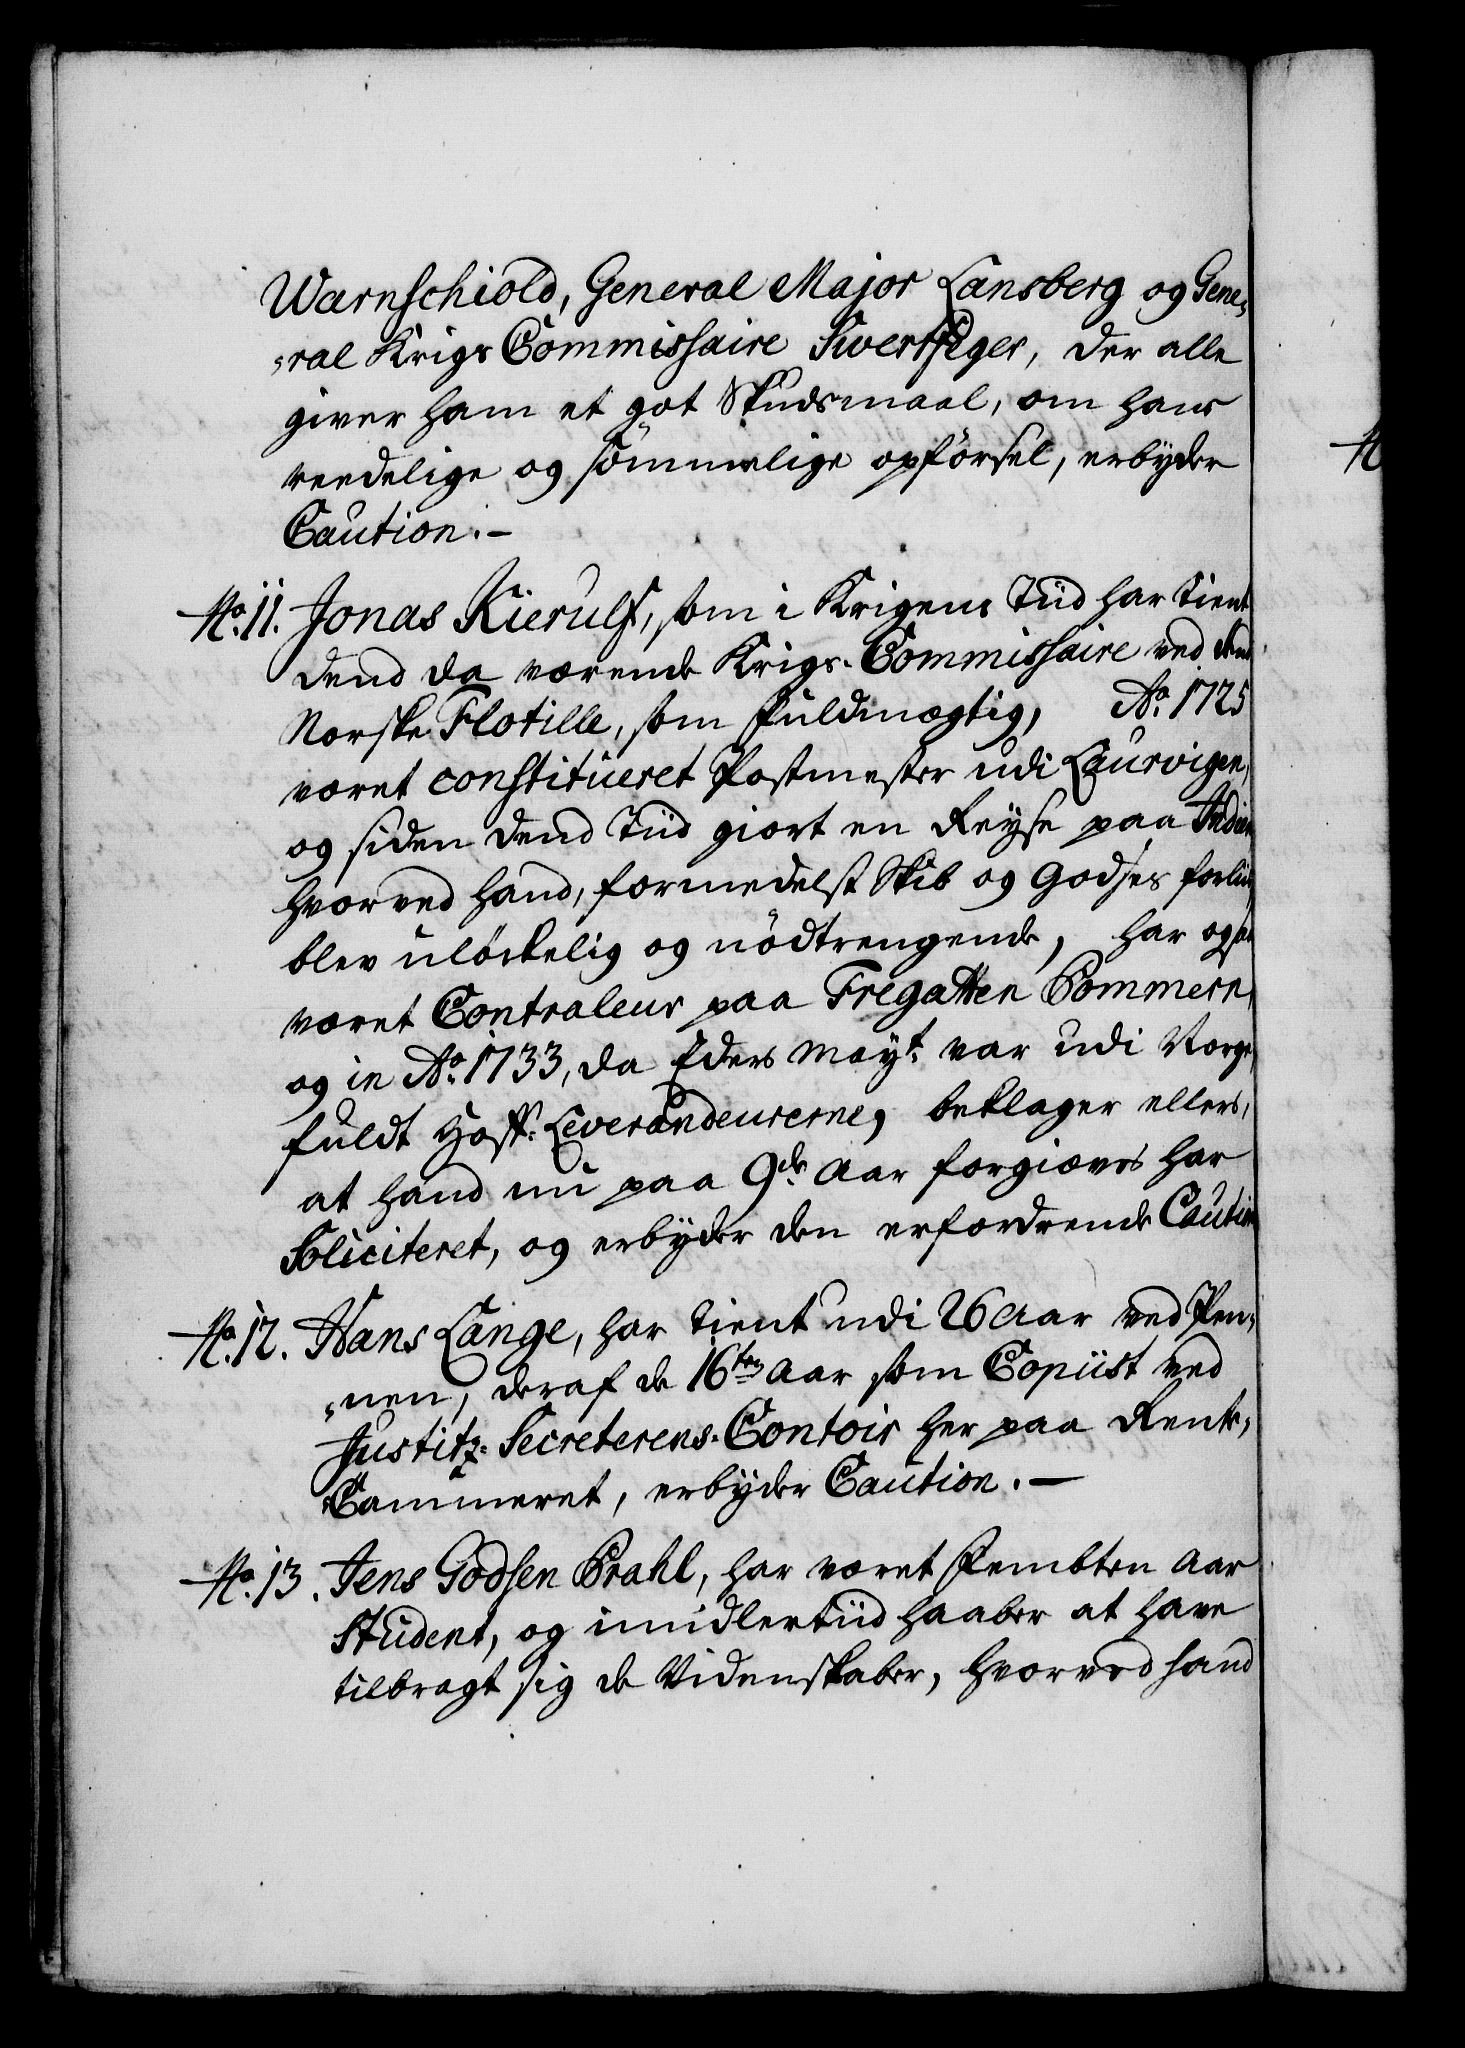 Warnschiold, General Major Lansberg og Gene,,
,,ral Krigs Commissaire Swertfeger, der alle
giver ham et got Skudsmaal, om hans
reedelige og sömmelige opförsel, erbyder
Caution. –
No. 11. Jonas Kierulf, som i Krigens Tiid har tient
dend da værende Krigs-Commissaire ved den
Norske Flotille, som Fuldmægtig, Ao. 1725
været constitueret Postmester udi Laurvigen,
og siden dend Tiid giort en Reyse paa Indien
hvorved hand, formedelst Skib og Godses forliis
blev uløckelig og nödtrengende, har ogsaa
været Contraleur paa Fregatten Pommern,
og in Ao. 1733, da Eders Mayt. var udi Norge,
fuldt Hoff-Leverandeurerne, beklager ellers,
at hand nu paa 9de Aar forgiæves har
Soliciteret, og erbyder den erfordrende Caution
No. 12. Hans Lange, har tient udi 26 Aar ved Pen,,
,,nen, deraf de 16ten Aar som Copiist ved
Justitz-Secreterens-Contoir her paa Rente,,
Cammeret, erbyder Caution. –
No. 13. Jens Godsen Prahl, har været Fembten Aar
Student, og imidlertiid haaber at have
tilbragt sig de Videnskaber, hvorved hand